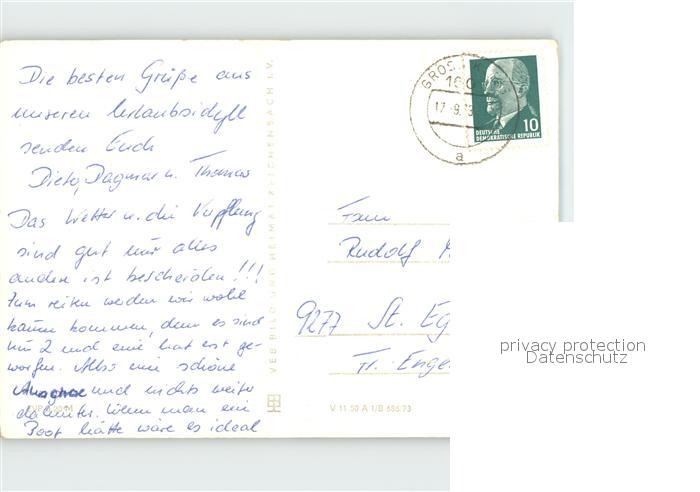 Die besten Grüße aus
unserem Urlaubsidyll
senden Euch
Dieter, Dagmar u. Thomas
Das Wetter u. die Verpflegung
sind gut nur alles
andere ist bescheiden!!!
Zum reiten werden wir wohl
kaum kommen, denn es sind
nur 2 und eine hat erst ge-
worfen. Also eine schöne
und nichts weiter
dahinter. Wenn man ein
Boot hätte wäre es ideal
VEB BILD UND HEIMAT REICHENBACH I. V.
V 11 50 A 1/B 686/73
GROS
17.-9.
a
10
DEUTSCHE
DEMOKRATISCHE REPUBLIK
Fam
Rudolf
9277 St. Eg
Fr. Enge
privacy protection
Datenschutz